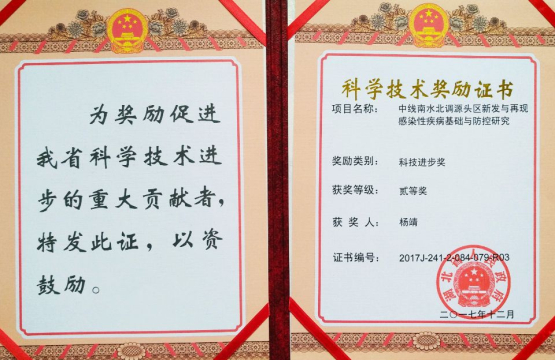 为奖励促进
我省科学技术进
步的重大贡献者,
特发此证，以资
鼓励。
科学技术奖励证书
项目名称： 中线南水北调源头区新发与再现
感染性疾病基础与防控研究
奖励类别： 科技进步奖
获奖等级： 贰等奖
获 奖 人： 杨靖
证书编号： 2017J-241-2-084-079-R03
湖北省人民政府
二〇一七年十二月